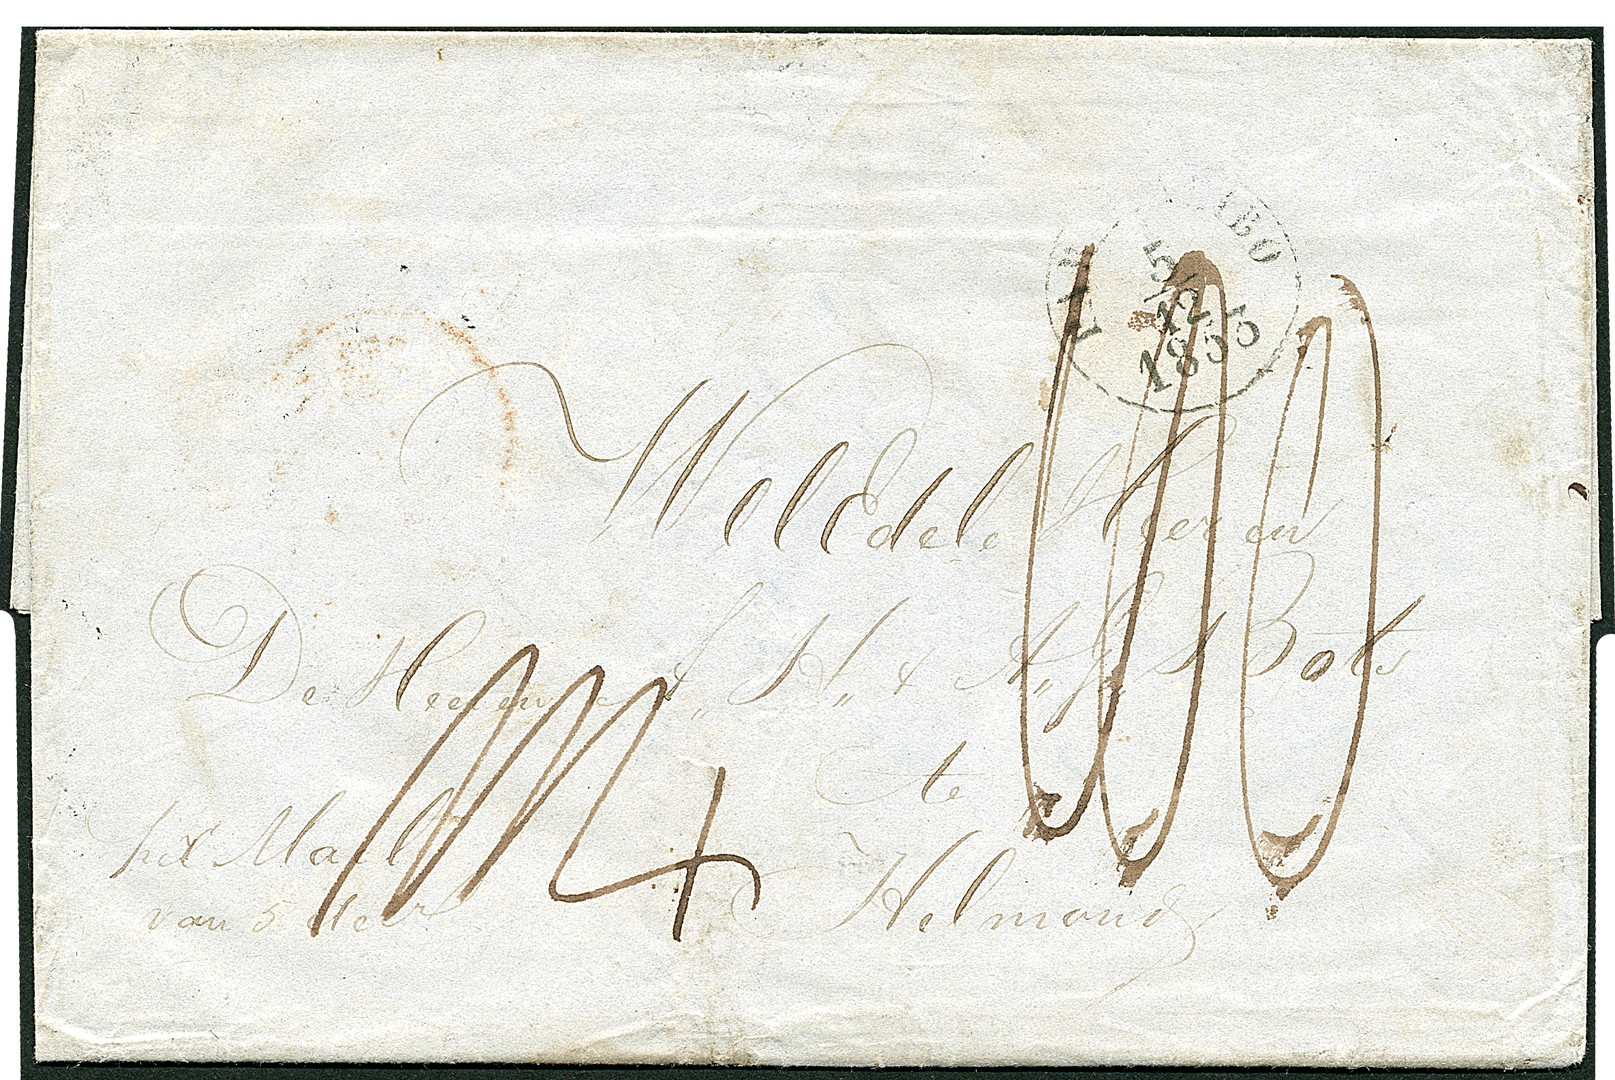 5/12
1855
WelEdele Heeren
De Heeren & H & A Bots
te
Helmond
per Mail
van 5 Decr